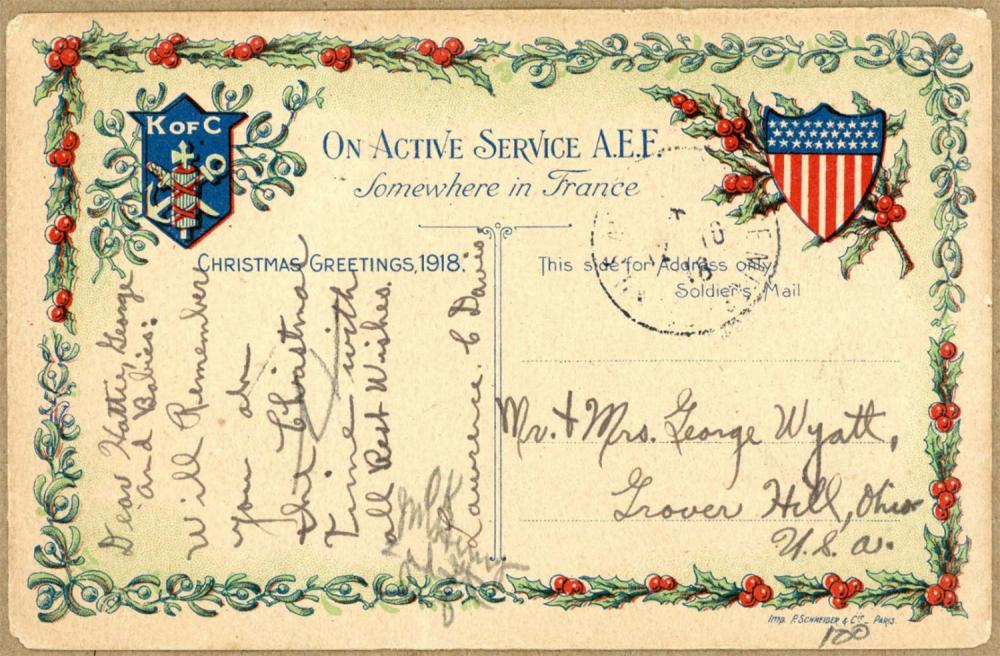 K OF C
ON ACTIVE SERVICE A.E.F.
Somewhere in France
CHRISTMAS GREETINGS, 1918.
This side for Address only.
Soldier's Mail
Dear Hattie George
and Babies:
Will Remember
you at
the Christmas
Time with
all Best Wishes.
Laurence C Davis
Mr. & Mrs. George Wyatt,
Grover Hill, Ohio
U.S.A.
Imp. P. SCHNEIDER & Cie_ PARIS.
100